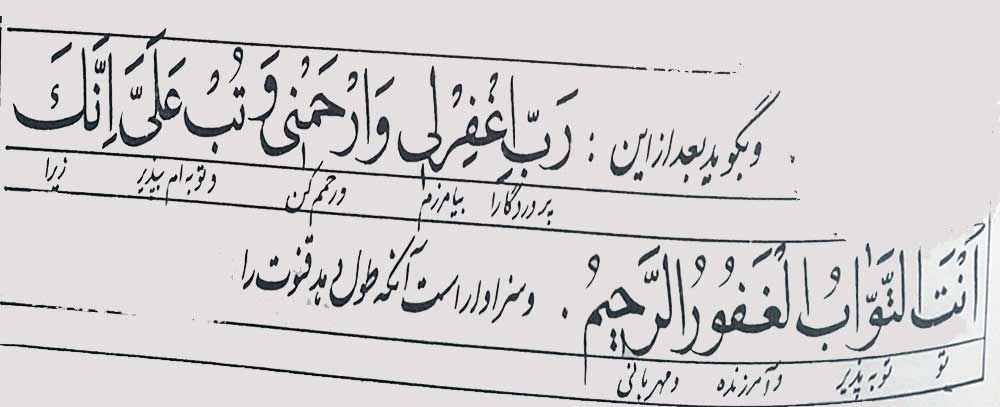 وبگوید بعد از این : رَبِّ اغْفِرْلی وَارْحَمْنی وَ تُبْ عَلَیَّ اِنَّکَ
پروردگارا بیامرزم ورحم کن وتوبه ام بپذیر زیرا
اَنْتَ التَّوّابُ الْغَفُورُ الرَّحیمُ . وسزاوار است آنکه طول دهد قنوت را
تو توبه پذیر وآمرزنده ومهربانی